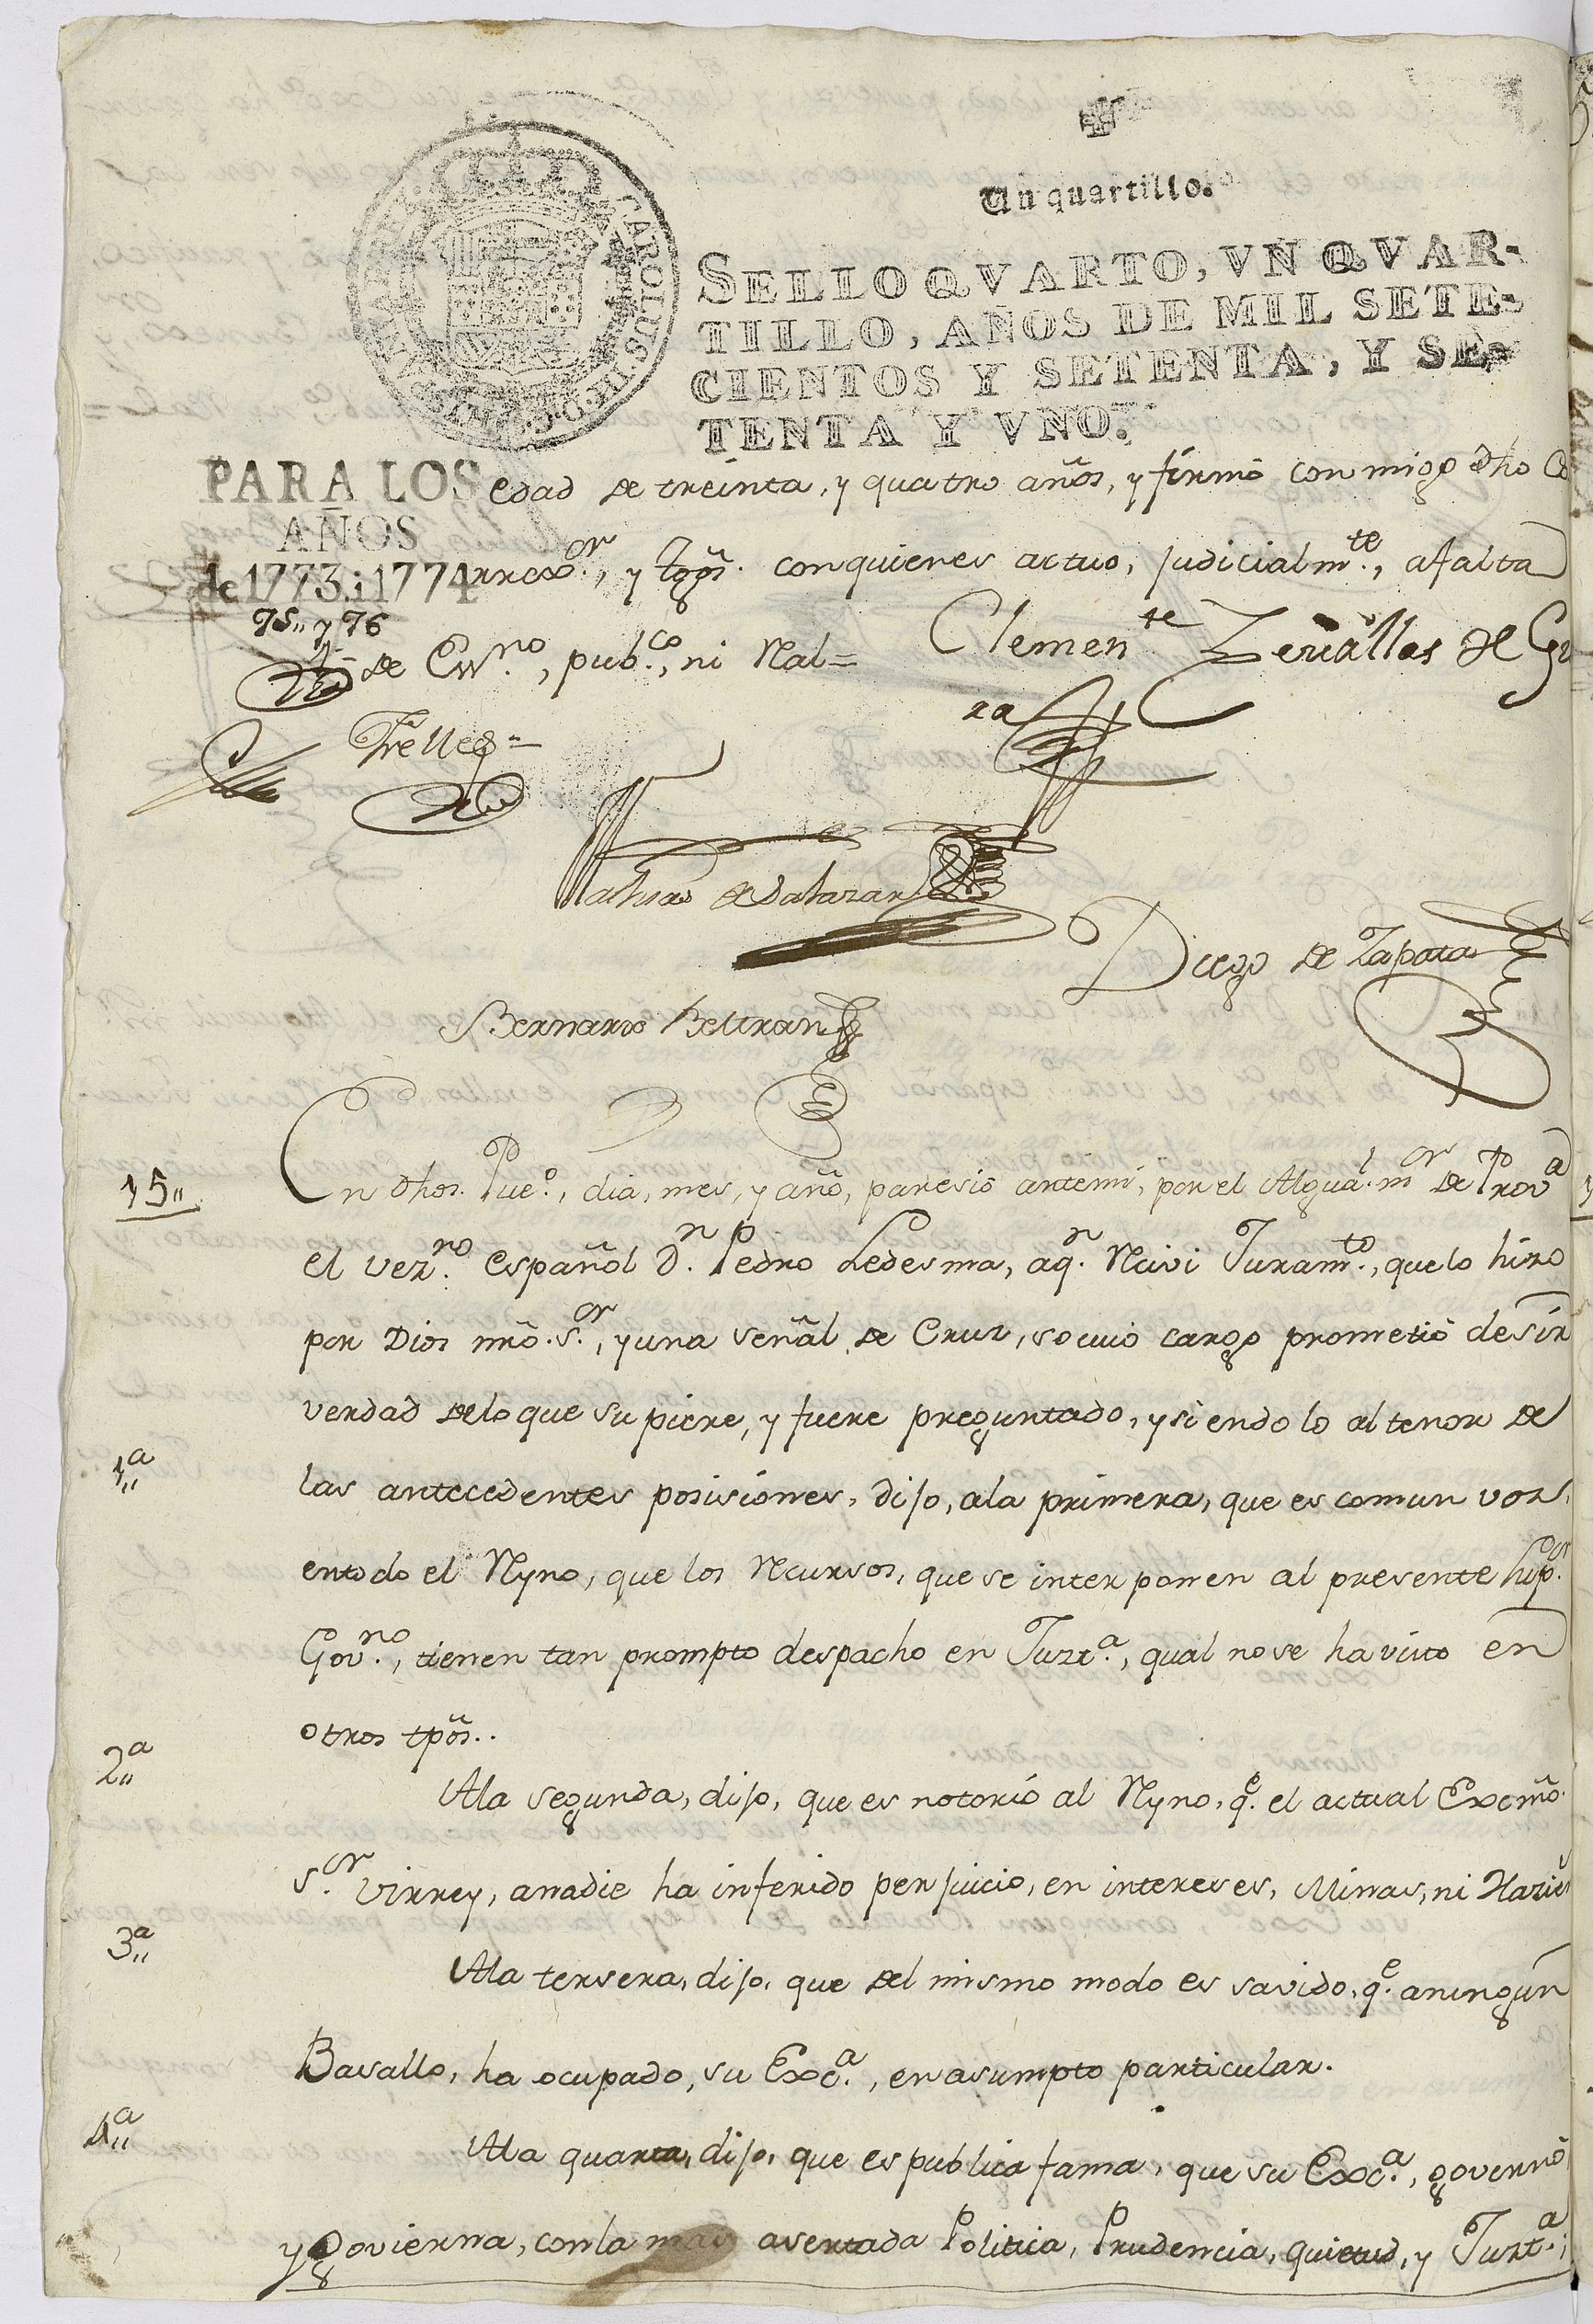 Un quartillo.
SELLO QVARTO, VN QVAR-
TILLO, AÑOS DE MIL SETE-
CIENTOS Y SETENTA, Y SE-
TENTA Y VNO.
PARA LOS
AÑOS
de 1773. i 1774
75,, y 76
edad de treinta, y quatro años, y firmó conmigo dho Co
rrexor., y tgos. con quienes actuo, judicialmte., a falta
de Essno., pubco., ni Real=
Clemente Zevallos de Gue
ra
Trelles=
Mathias de Salazar
Diego de Zapata
Bernardo Beltran
15,,
En dhos. Pueo., dia, mes, y año, paresió ante mi, por el Algual. mor de Prova
el vezno. español Dn. Pedro Ledesma, aqn. Reciví Juramto., que lo hizo
por Dios nro. Sor., y una señal de Cruz, so cuio cargo prometió desir
verdad de lo que supiere, y fuere preguntado, y siendolo al tenor de
1a,,
las antecedentes posisiones, dijo, a la primera, que es comun voz,
en todo el Reyno, que los Recursos, que se interponen al presente Supor.
Govno., tienen tan prompto despacho en Justa., qual no se ha visto en
otros tpos..
2a,,
A la segunda, dijo, que es notorio al Reyno, qe. el actual Excmo.
Sor. Virrey, a nadie ha inferido perjuicio, en intereses, Minas, ni Hazies
3a,,
A la tersera, dijo, que del mismo modo es savido, qe. a ningun
Basallo, ha ocupado, su Exca., en asumpto particular.
4a,,
A la quarta, dijo, que es publica fama, que su Exca., governó
y Govierna, con la mas asertada Politica, Prudencia, quietud, y Justa.;